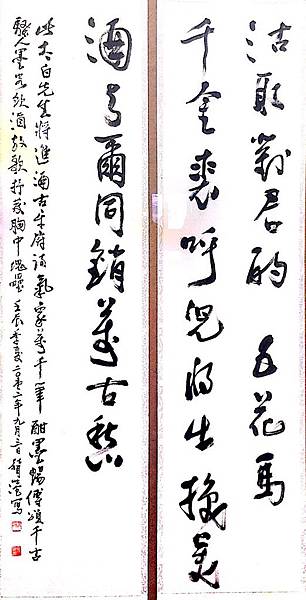 沽取對君酌 五花馬
千金裘呼兒將出換美
酒與爾同銷萬古愁
此太白先生將進酒古詩氣象萬千筆酣墨暢傳頌千古
騷人墨客飲酒放歌抒發胸中塊壘 壬辰年九月三日寫